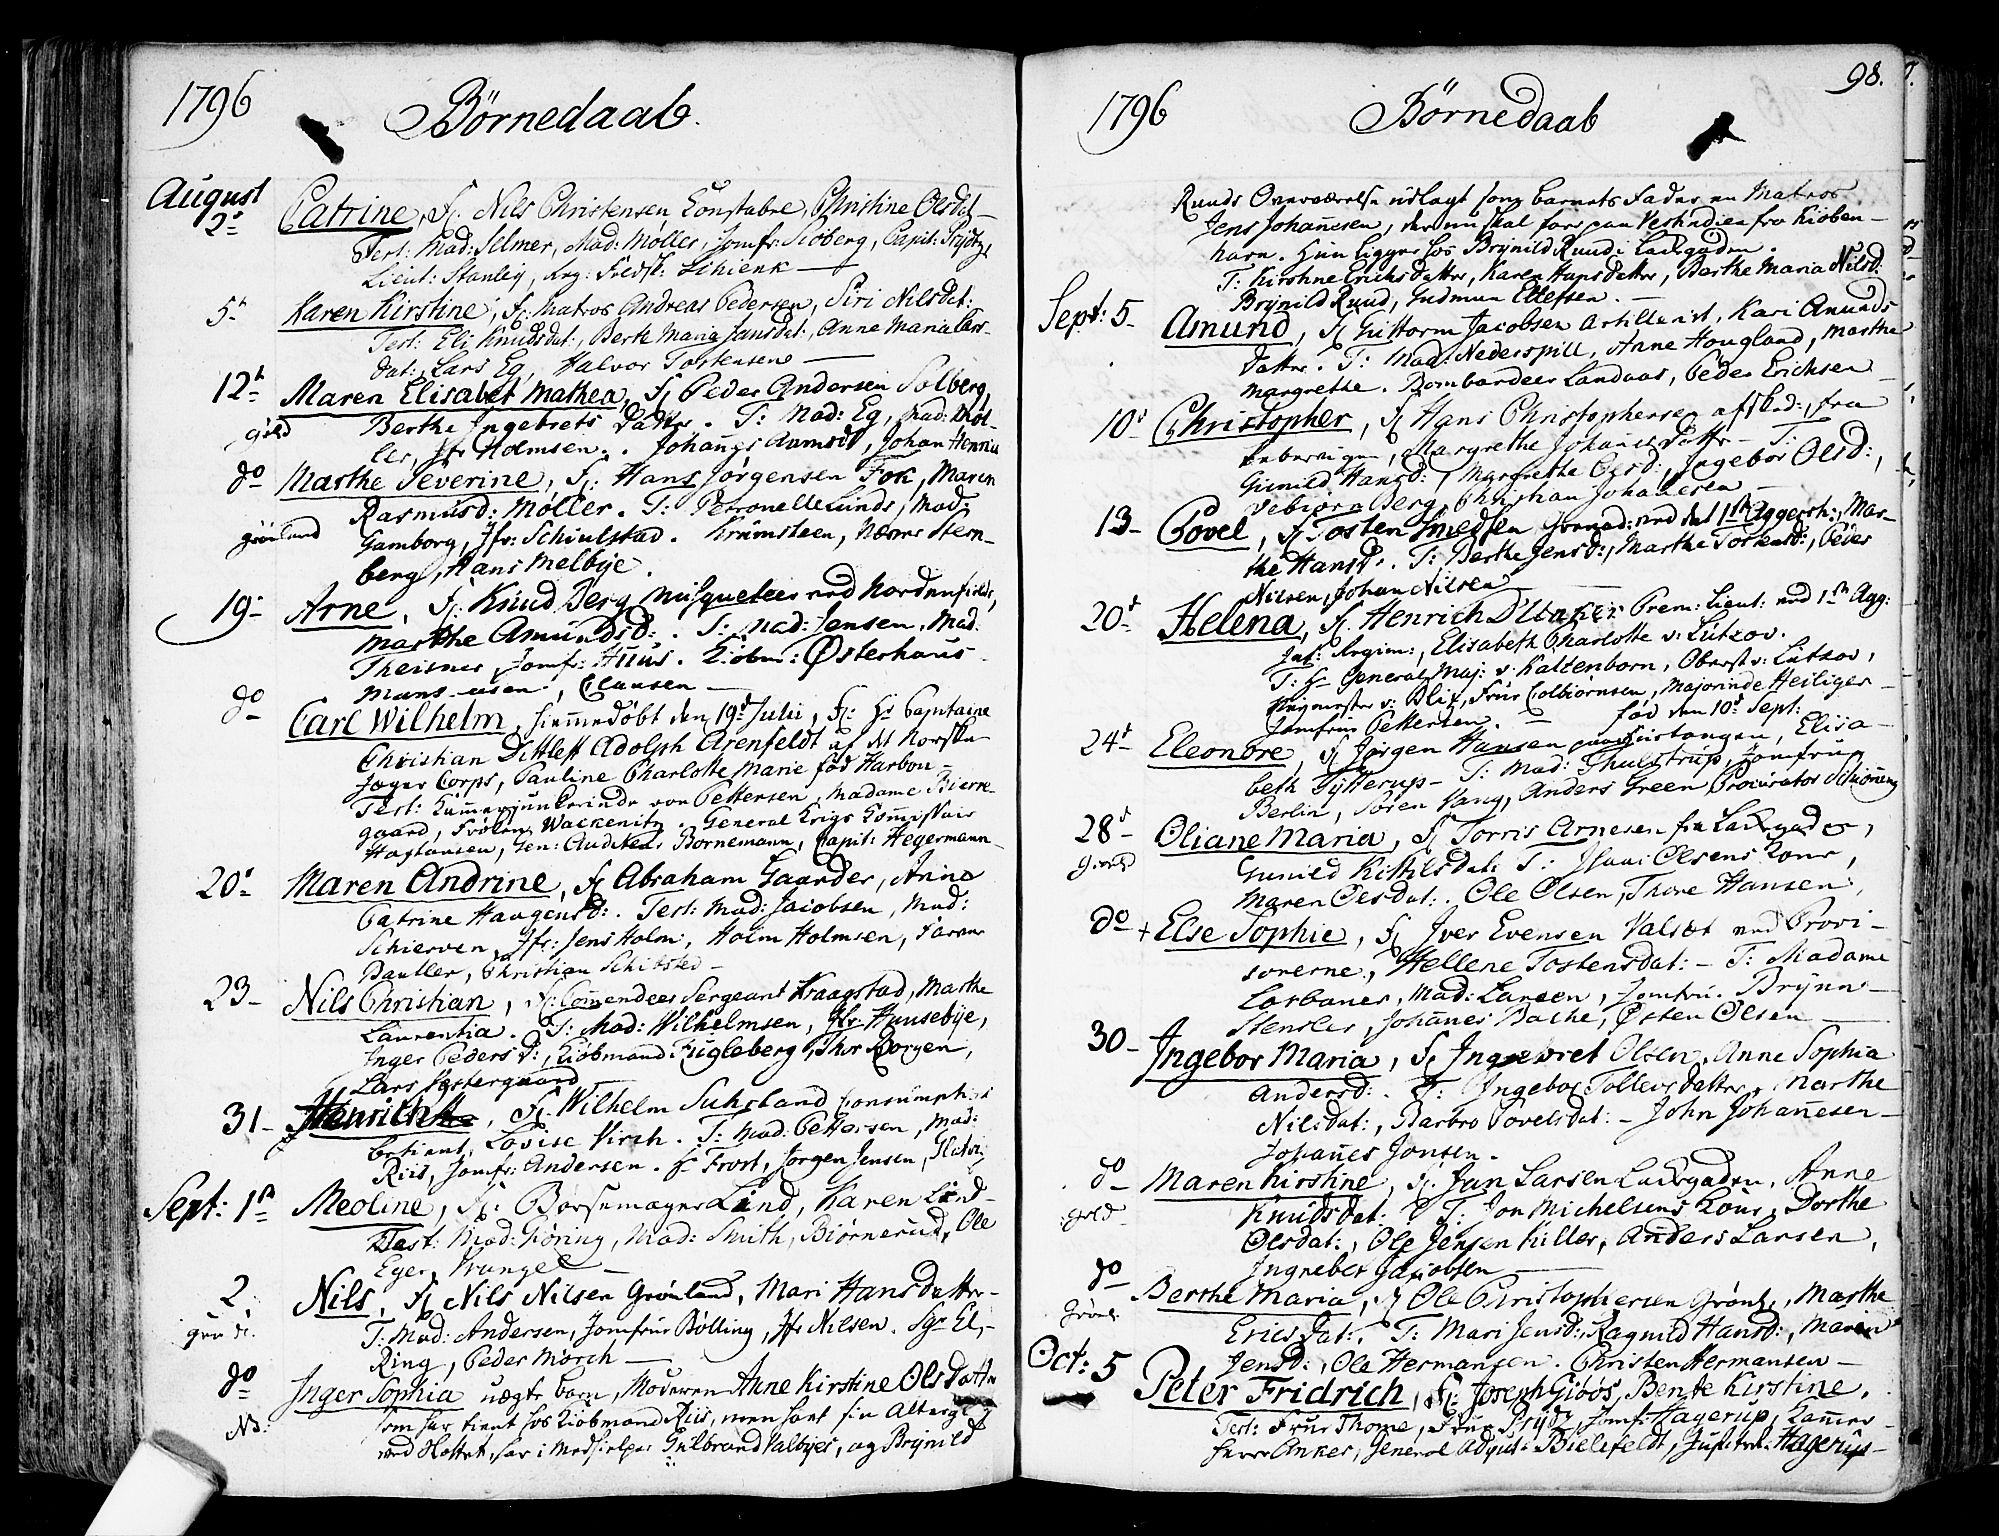 1796 Børnedaab.
August
2d Catrine, F. Nils Christensen Constabel, Christine Olsdat.
Test: Mad: Selmer, Mad: Møller, Jomfr: Sioberg, Capit: Prydtz,
Lieut: Stanley, Schienk
5t Karen Kirstine, F: Matros Andreas Pedersen, Siri Nilsdat:
Test: Eli Knudsdat:, Berte Maria Jansdat:, Anne Maria Lars-
dat:, Lars Eg, Halvor Tostensen
12t Maren Elisabet Mathea, F. Peder Andersen Solberg,
Berthe Ingebrets Datter. T: Mad: Eg, Mad: Møl-
ler, Jfr Holmsen. Johan Henrich
do Marthe Severine, F: Hans Jørgensen Fok, Maren
Rasmusd: Møller. T: Petronelle Lunds, Mad
grønland Gamborg, Jfr: Schiulstad. Krumsteen, Stern-
berg, Hans Melbye.
19- Arne, F: Knud Berg Musqueteer ved Nordenfields,
Marthe Amundsd:. T: Mad: Jensen, Mad.
Theisner, Jomfr: Huus. Kiøbm: Østerhaus
Clausen
do Carl Wilhelm, hiemmedøbt den 19d Julii, F: Hr Capitaine
Christian Dittleff Adolph Arenfeldt af det Norske
Jæger Corps, Pauline Charlotte Marie fød Harbou-
Test: Kammerjunkerinde von Pettersen, Madame Bierre-
gaard, Frøken Wackenitz. General Krigs Commissair
Haxthausen, Gen: Auditeur Bornemann, Capit: Hegermann
20d Maren Andrine, F. Abraham Gaarder, Anne
Catrine Haagensd:. Test: Mad: Jacobsen, Mad:
Schierven, Jfr: Jens Holm, Holm Holmsen, Søren
Dautler, Christian Schibsted
23- Nils Christian, F: Comendeer Sergeant Kraagstad, Marthe
Laurentia. T: Mad: Wilhelmsen, Jfr: Huusebye,
Inger Pedersd:, Kiøbmand Fugleberg, Thor Borgen,
Lars Vestergaard
31- Henrich, F. Wilhelm Suhrland Consumptions
betient, Lovise Virch. T: Mad: Pettersen, Mad:
Riis, Jomfr: Andersen. Hr Frost, Jørgen Jensen,
Sept: 1st Meoline, F: Børsemager Lind, Karen Lind-
Test: Mad: Giøring, Mad: Smith, Biørnerud, Ole
Eger, Vrangel
2. Nils, F. Nils Nilsen Grønland, Mari Hansdatter-
T: Mad: Andersen, Jomfrue Bølling, Jfr Nilsen. Sgr El,-
Ring, Peder Mørch
do Inger Sophia uægte barn, Moderen Anne Kirstine Olsdatter
NB: som har tient hos Kiøbmand Riis, men har sin
ved Slottet, har i Medhielper Gulbrand Valbyes, og Brynild
1796 Børnedaab 98.
Ruuds Overværelse udlagt som barnets Fader en Matros
Jens Johannesen, der nu skal fare paa Vestindien fra Kiøben-
havn. Hun ligger hos Brynild Ruud i Lakegaden.
T: Kirstine Erichsdatter, Karen Hansdatter, Berthe Maria Nilsd:
Brynild Ruud, Gudmun Ellefsen.
Sept: 5- Amund, F. Guttorm Jacobsen Artillerist, Kari Amunds
datter. T: Mad: Nederspill, Anne Hougland, Marthe
Margrethe. Bombardeer Landaas, Peder Erichsen
10d Christopher, F. Hans Christophersen afsked: fra
Margrethe Johannesdatter- T:
Gunild Hansd:, Margrethe Olsd:, Ingebor Olsd:,
Vebiørn Berg, Christian Johannesen
13- Povel, F. Tosten Smedsen Grenad: ved det 1ste Aggersh:, Mar-
the Hansd:. T: Berthe Jensd:, Marthe Tostensd:, Peder
Nilsen, Johan Nilsen
20d Helena, F. Henrich D'Unker Prem: Lieut: ved 1ste Agg:
Inf: Regim:, Elisabeth Charlotte v: Lützov.
T: Hr General Maj: v: Kaltenborn, Oberst v: Lützov,
Frue Colbiørnsen, Majorinde Heiliger
Jomfrue Pettersen. fød den 10d Sept:
24d Eleonore, F. Jørgen Hansen paa Fæstangen, Elisa-
beth Tytterup- T: Mad: Thulstrup, Jomfrue
Berlin, Søren Vang, Anders Green, Procurator Schiønning
28d Oliane Maria, F. Torris Arnesen fra Lakegaden,
Gunild Kittilsdat: T: Isaac Olsens Kone,
Maren Olsdat:. Ole Olsen, Thore Hansen,
do + Else Sophie, F. Iver Evensen Valset ved Provi-
sorerne, Hellene Tostensdat: - T: Madame
Corbanes, Mad: Larsen, Jomfru. Brynn-
Stensler, Johannes Bache, Østen Olsen
30- Ingebor Maria, F. Ingebret Olsen, Anne Sophia
Andersd:. T: Ingebor Tollevsdatter, Marthe
Nilsdat:, Barbro Povelsdat: - John Johannesen-
Johannes Jonsen.
do Maren Kirstine, F. Jan Larsen Lakegaden, Anne
Knudsdat: T: Jon Michelsens Kone, Dorthe
Olsdat:, Ole Jensen Kitler, Anders Larsen,
Ingreber Jacobsen
do Berthe Maria, F Ole Christophersen Grønl:, Marthe
Grønl Ericsdat:, T: Mari Jensd:, Ragnild Hansd:, Maren
Jensd:, Ole Hermansen. Christen Hermansen-
Oct: 5 Peter Fridrich, F: Joseph Giøös, Bente Kirstine.
Test: Frue Thome, Frue Prydz, Jomfr: Hagerup, Kammer-
herre Anker, General Adjut: Bielefeldt, Justitsr: Hagerup-